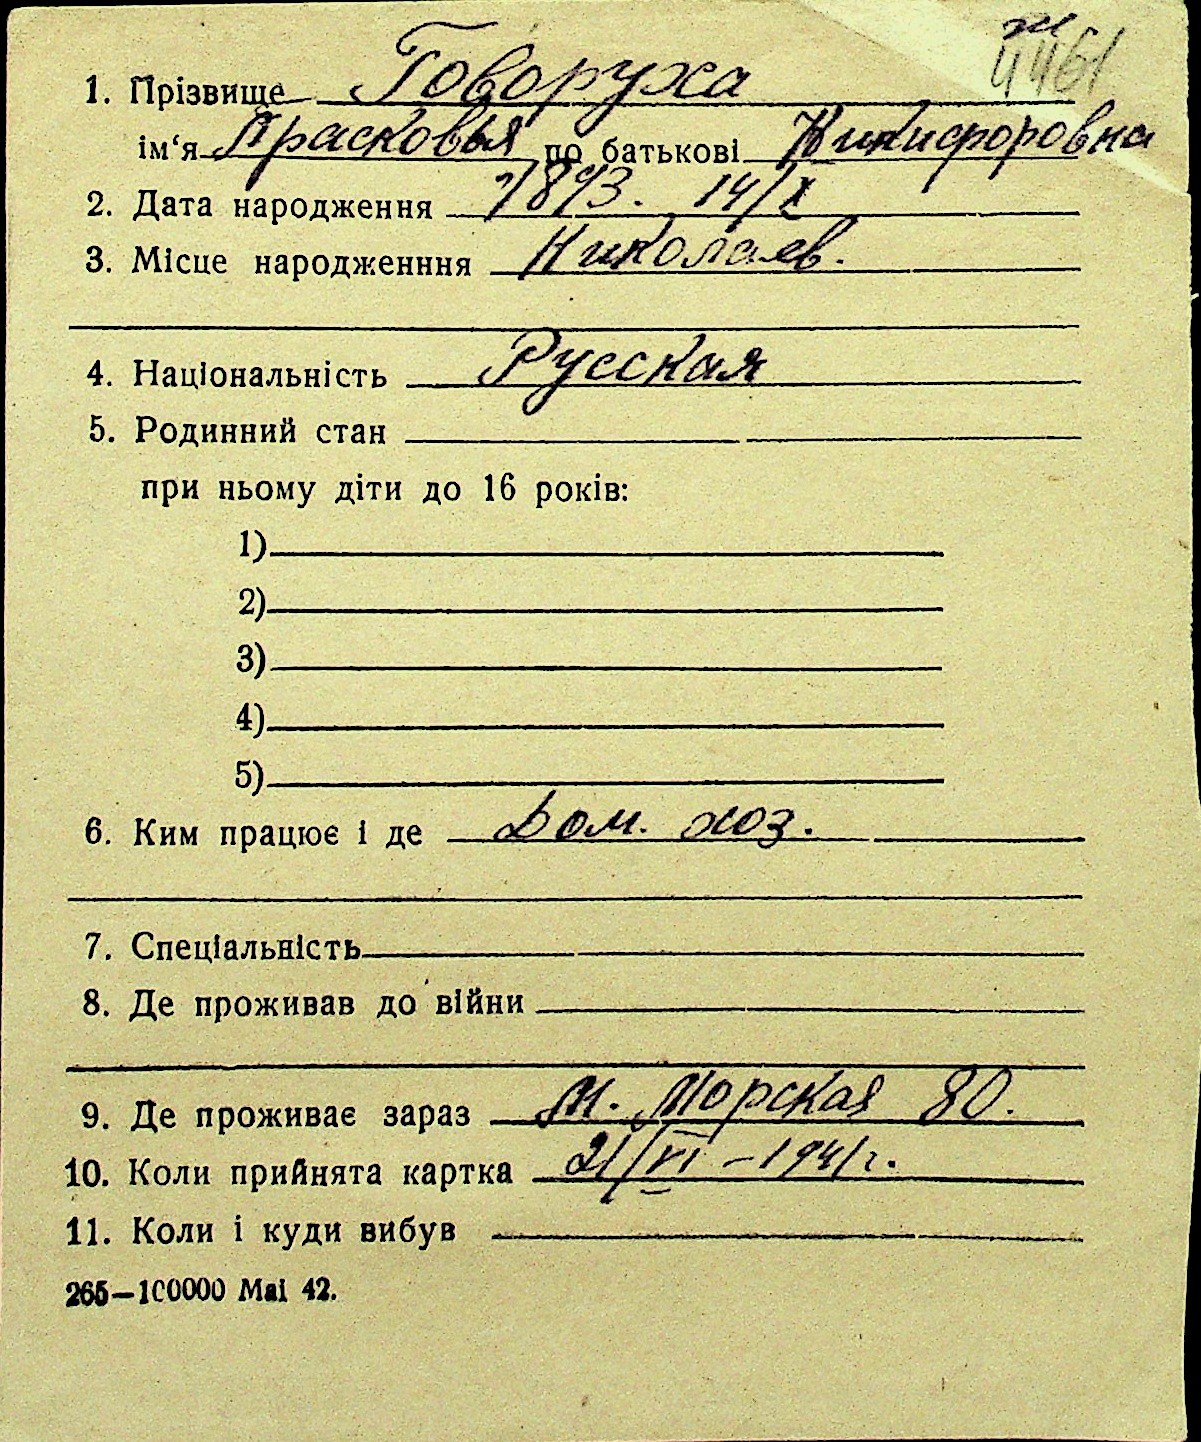 ж
4461
1. Прізвище Говоруха
ім‘я Прасковья по батькові Никифоровна
2. Дата народження 1893. 14/X
3. Місце народженння Николаев.
4. Національність Русская
5. Родинний стан
при ньому діти до 16 років:
1)
2)
3)
4)
5)
6. Ким працює і де Дом. хоз.
7. Спеціальність
8. Де проживав до війни
9. Де проживає зараз М. Морская 80.
10. Коли прийнята картка 21/VI – 1941 г.
11. Коли і куди вибув
265—100000 Mai 42.